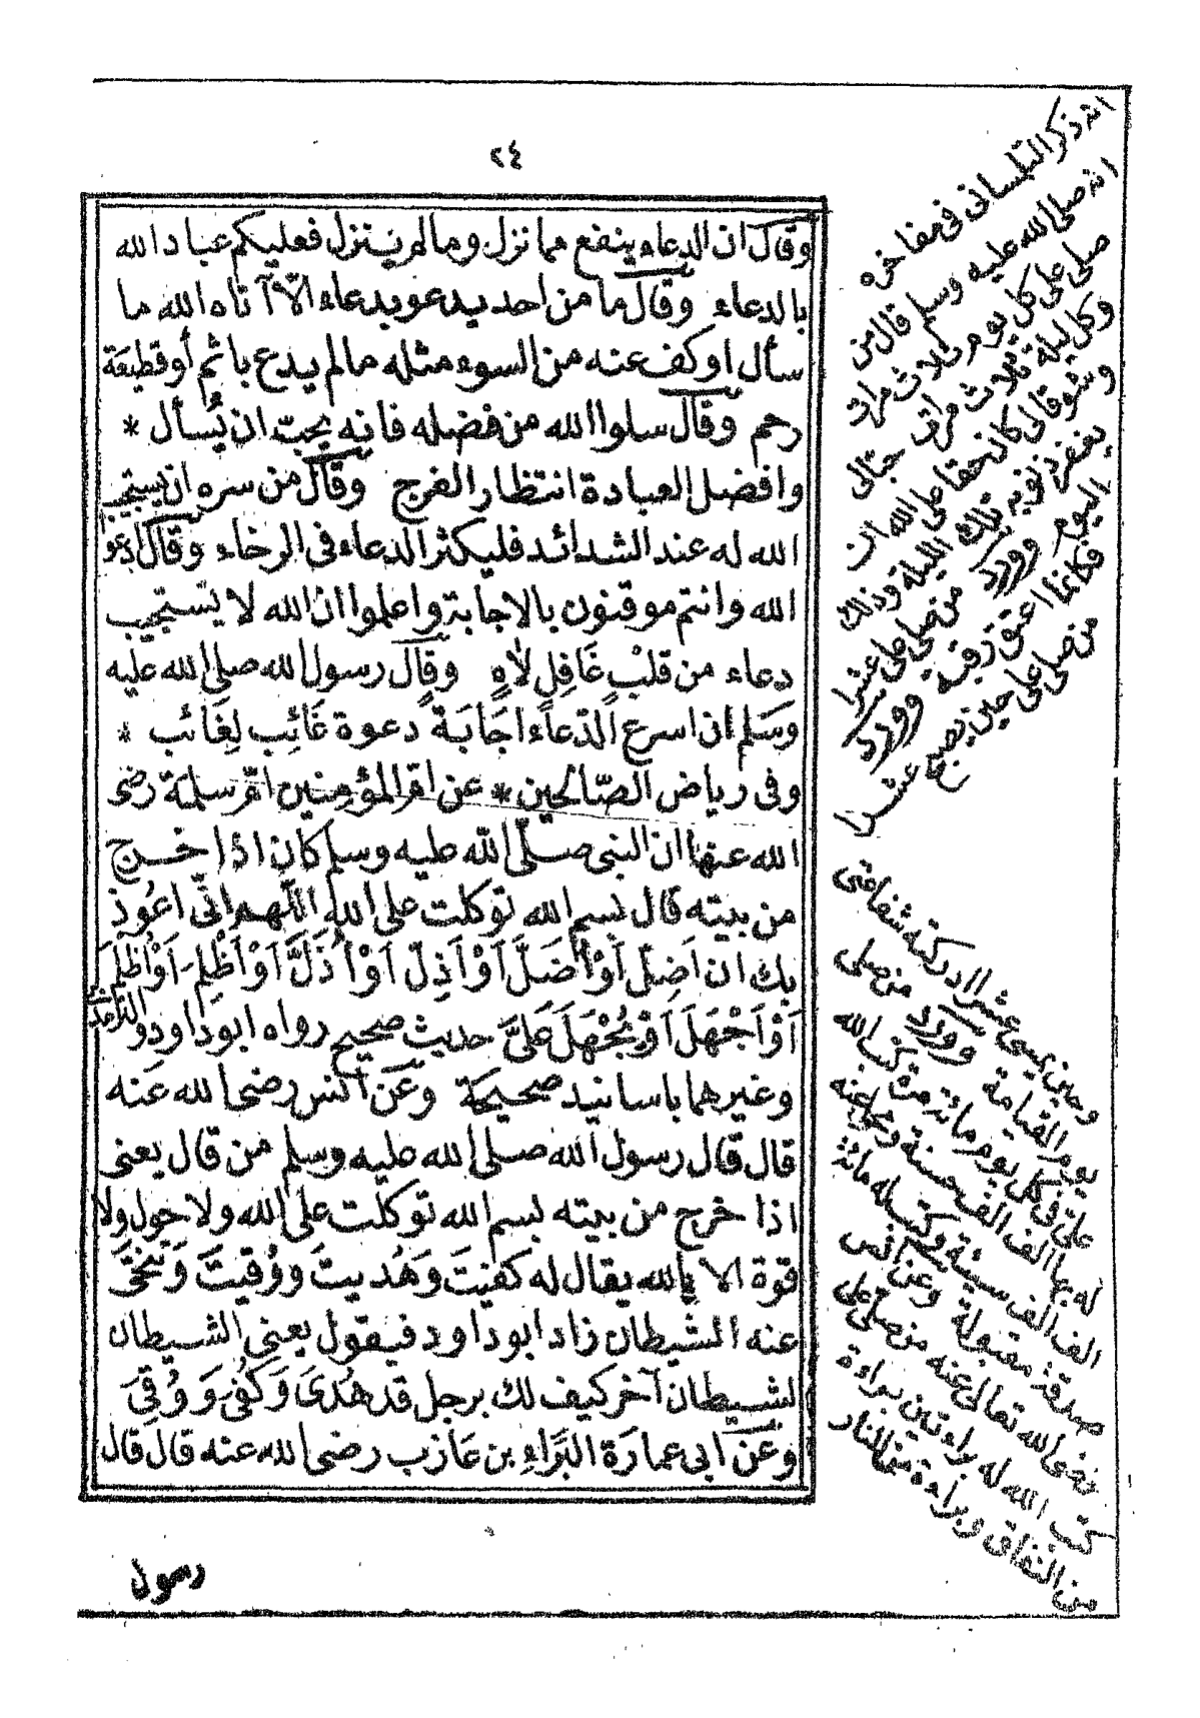 ٢٤
وقال ان الدعاء ينفع مما نزل ومما لم ينزل فعليكم عباد الله
بالدعاء وقال ما من احد يدعو بدعاء الّا آتاه الله ما
سأل او كف عنه من السوء مثله مالم يدع باثم أو قطيعة
رحم وقال سلوا الله من فضله فانه يحبّ ان يُسأل *
وافضل العبادة انتظار الفرج وقال من سره ان يستجيب
الله له عند الشدائد فليكثر الدعاء فى الرخاء وقال ادعو
الله وانتم موقنون بالاجابة واعلموا ان الله لا يستجيب
دعاء من قلبٍ غَافِلٍ لَاهٍ وقال رسول الله صلى الله عليه
وَسَلم ان اسرع الدّعاء اجَابَةً دعوة غَائِب لِغَائب *
وفى رياض الصّالحين * عن امّ المؤمِنين امّ سلمة رضى
الله عنها ان النبى صلّى الله عليه وسلم كان اذا خرج
من بيته قال بسم الله توكلت على الله اللّهم انّى اعُوذ
بك ان اَضِلّ اَوْ اُضَلَّ اَوْ اَذِلّ اَوْ اُذَلَّ اَوْ اَظْلِمَ اَوْ اُظْلَمَ
اَوْ اَجْهَلَ اَوْ يُجْهَلَ عَلَىَّ حديث صحيح رواه ابو داود والترمذى
وغيرهما باسانيد صحيحة وعَن انس رضى الله عَنه
قال قال رسول الله صلى الله عليه وسلم من قال يعنى
اذا خرج من بيته بسم الله توكلت على الله ولا حول ولا
قوة الا بالله يقال له كفيتَ وَهُديتَ وَوُقيتَ وَتنحَّى
عنه الشيطان زاد ابو داود فيقول يعنى الشيطان
لشيطان آخر كيف لك برجل قد هُدىَ وَكُفىَ وَوُقِىَ
وعَن ابى عمارَة البَرَاءِ بن عَازب رضى الله عنه قال قال
رسول
انه ذكر التلمسانى فى مفاخره
انه صلى الله عليه وسلم قال من
صلى على كل يوم ثلاث مرات
وكل ليلة ثلاث مرات حبالى
وشوقا لى كان حقا على الله ان
يغفر ذنوبه تلك الليلة وذلك
اليوم وورد من صلى على عشرا
فكانما اعتق رقبة وورد
من صلى على حين يصبح عشرا
وحين يمسى عشرا ادركته شفاعتى
يوم القيامة وورد من صلى
على فى كل يوم مائة مرة كتب الله
له بها الف الف حسنة ومحا عنه
الف الف سيئة وكتب له مائة
صدقة مقبولة وعن انس
رضى الله تعالى عنه من صلى على
كتب الله له براءتين براءة
من النفاق وبراءة من النار